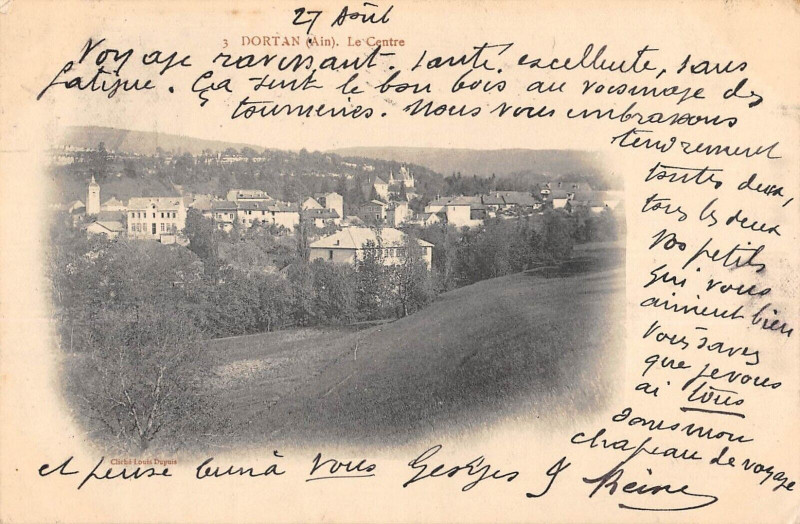 27 Août
3 DORTAN (Ain). Le Centre
Voyage ravissant. Santé excellente, sans
fatigue. Ça sent le bon bois au voisinage des
tourneries. Nous vous embrassons
tendrement
toutes deux,
tous les deux
Vos petits
qui vous
aiment bien
Vous savez
que je vous
ai tous
dans mon
chapeau de voyage
et pense bien à vous Georges & Reine
Cliché Louis Dupuis